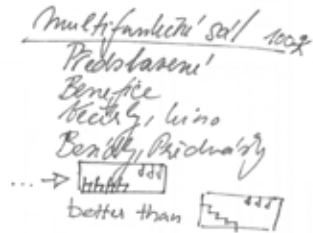 multifunkční sál 100%
Představení
Benefice
Večírky, kino
Besídky, Přednášky
... →
better than